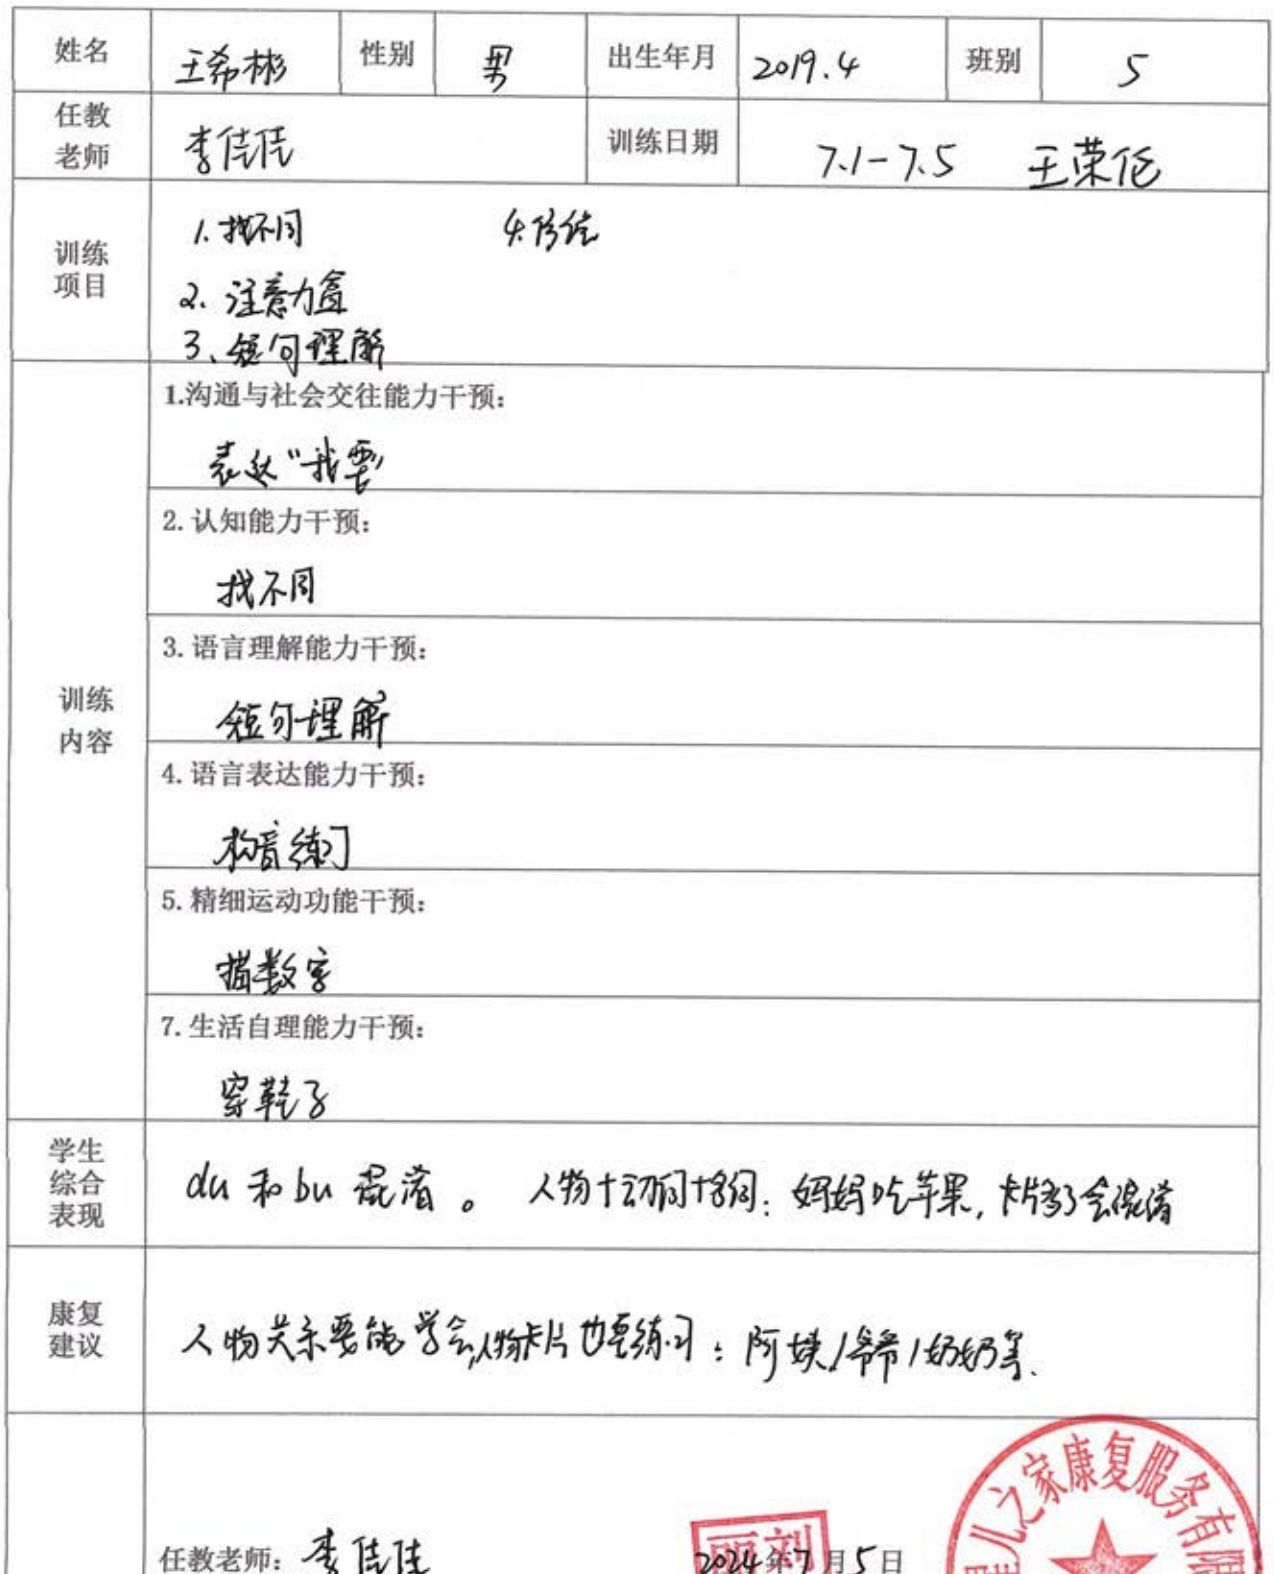 姓名 王希彬 性别 男 出生年月 2019.4 班别 5
任教老师 李佳佳 训练日期 7.1-7.5 王荣
训练项目
1.找不同 4.
2.注意力盒
3.短句理解
训练内容
1.沟通与社会交往能力干预：
表达“我要”
2.认知能力干预：
找不同
3.语言理解能力干预：
短句理解
4.语言表达能力干预：
构音练习
5.精细运动功能干预：
描数字
7.生活自理能力干预：
穿鞋子
学生综合表现
du和bu混淆。 人物+动词+名词：妈妈吃苹果，卡片多了会混淆
康复建议
人物关系要能学会，人物卡片也要练习：阿姨/爷爷/奶奶等.
任教老师：李佳佳 2024年7月5日
儿之家康复服务有限